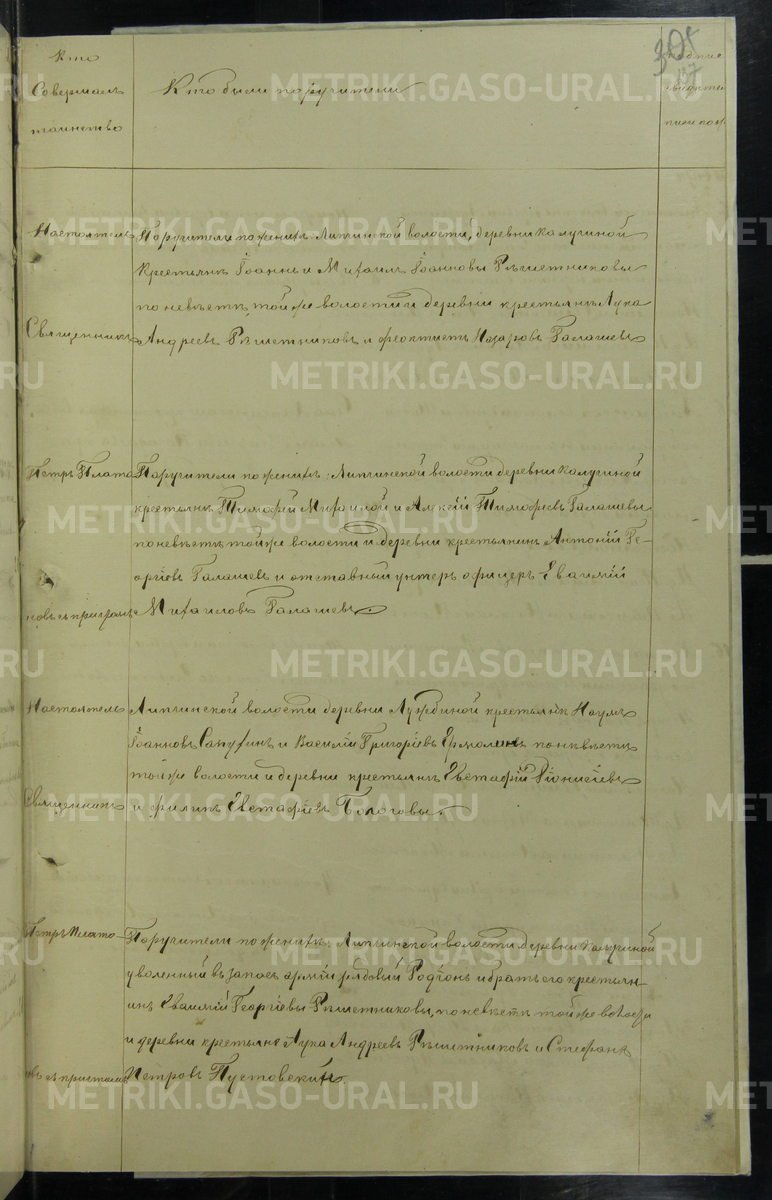 Кто
Совершалъ
таинство
Кто были поручители
305
137
METRIKI.GASO-URAL.RU
Настоятель
Поручители по женихѣ Липчинской волости, деревни Калугиной
крестьяне Іоаннъ и Михаилъ Іоанновы Рѣшетниковы
по невѣстѣ, той же волости и деревни крестьяне Лука
Священникъ
Андреевъ Рѣшетниковъ и Феоктистъ Назаровъ Галашевъ
Петръ Плато
Поручители по женихѣ: Липчинской волости деревни Калугиной
крестьяне Тимофей Михайловъ и Алексій Тимофеевъ Галашевы
по невѣстѣ той же волости и деревни крестьянинъ Антоній Ге-
оргіевъ Галашевъ и отставный унтеръ офицеръ Евѳимій
новъ съ причтомъ
Михаиловъ Галашевъ.
Настоятель
Липчинской волости деревни Лужбиной крестьяне Наумъ
Іоанновъ и Василій Григоріевъ Ермолинъ по невѣстѣ
той же волости и деревни крестьяне Евстафій Діонисіевъ
Священникъ
и Филипъ Евстафіевъ Бологовы.
Петръ Плато-
Поручители по женихѣ: Липчинской волости деревни Калугиной
уволенный въ запасъ арміи рядовый Родіонъ и братъ его крестьян-
инъ Евѳимій Георгіевы Рѣшетниковы, по невѣстѣ той же волости
и деревни крестьяне Лука Андреевъ Рѣшетниковъ и Стефанъ
новъ съ причтомъ
Петровъ